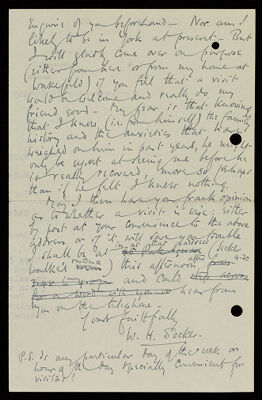 Enquire of you beforehand – Nor am I
likely to be in York at present – But
I will gladly come over on purpose
(either from here or from my home at
Wakefield) if you feel that a visit
would be welcome and really do my
friend good – My fear is that knowing
that I know (i.e. from himself) the family
history and the anxieties that have
weighed on him in past years, he might
only be upset at seeing me before he
is really recovered, more so perhaps
than if he felt I knew nothing.
May I then have your frank opinion
as to whether a visit is wise: either
by post at your convenience to the above
address or if it will save you trouble
I shall be at
this afternoon after 4.30
and could
hear from
you on the telephone.
Yours faithfully
W. H. Secker.
P.S. Is any particular day of the week or
hour of the day specially convenient for
visitors?